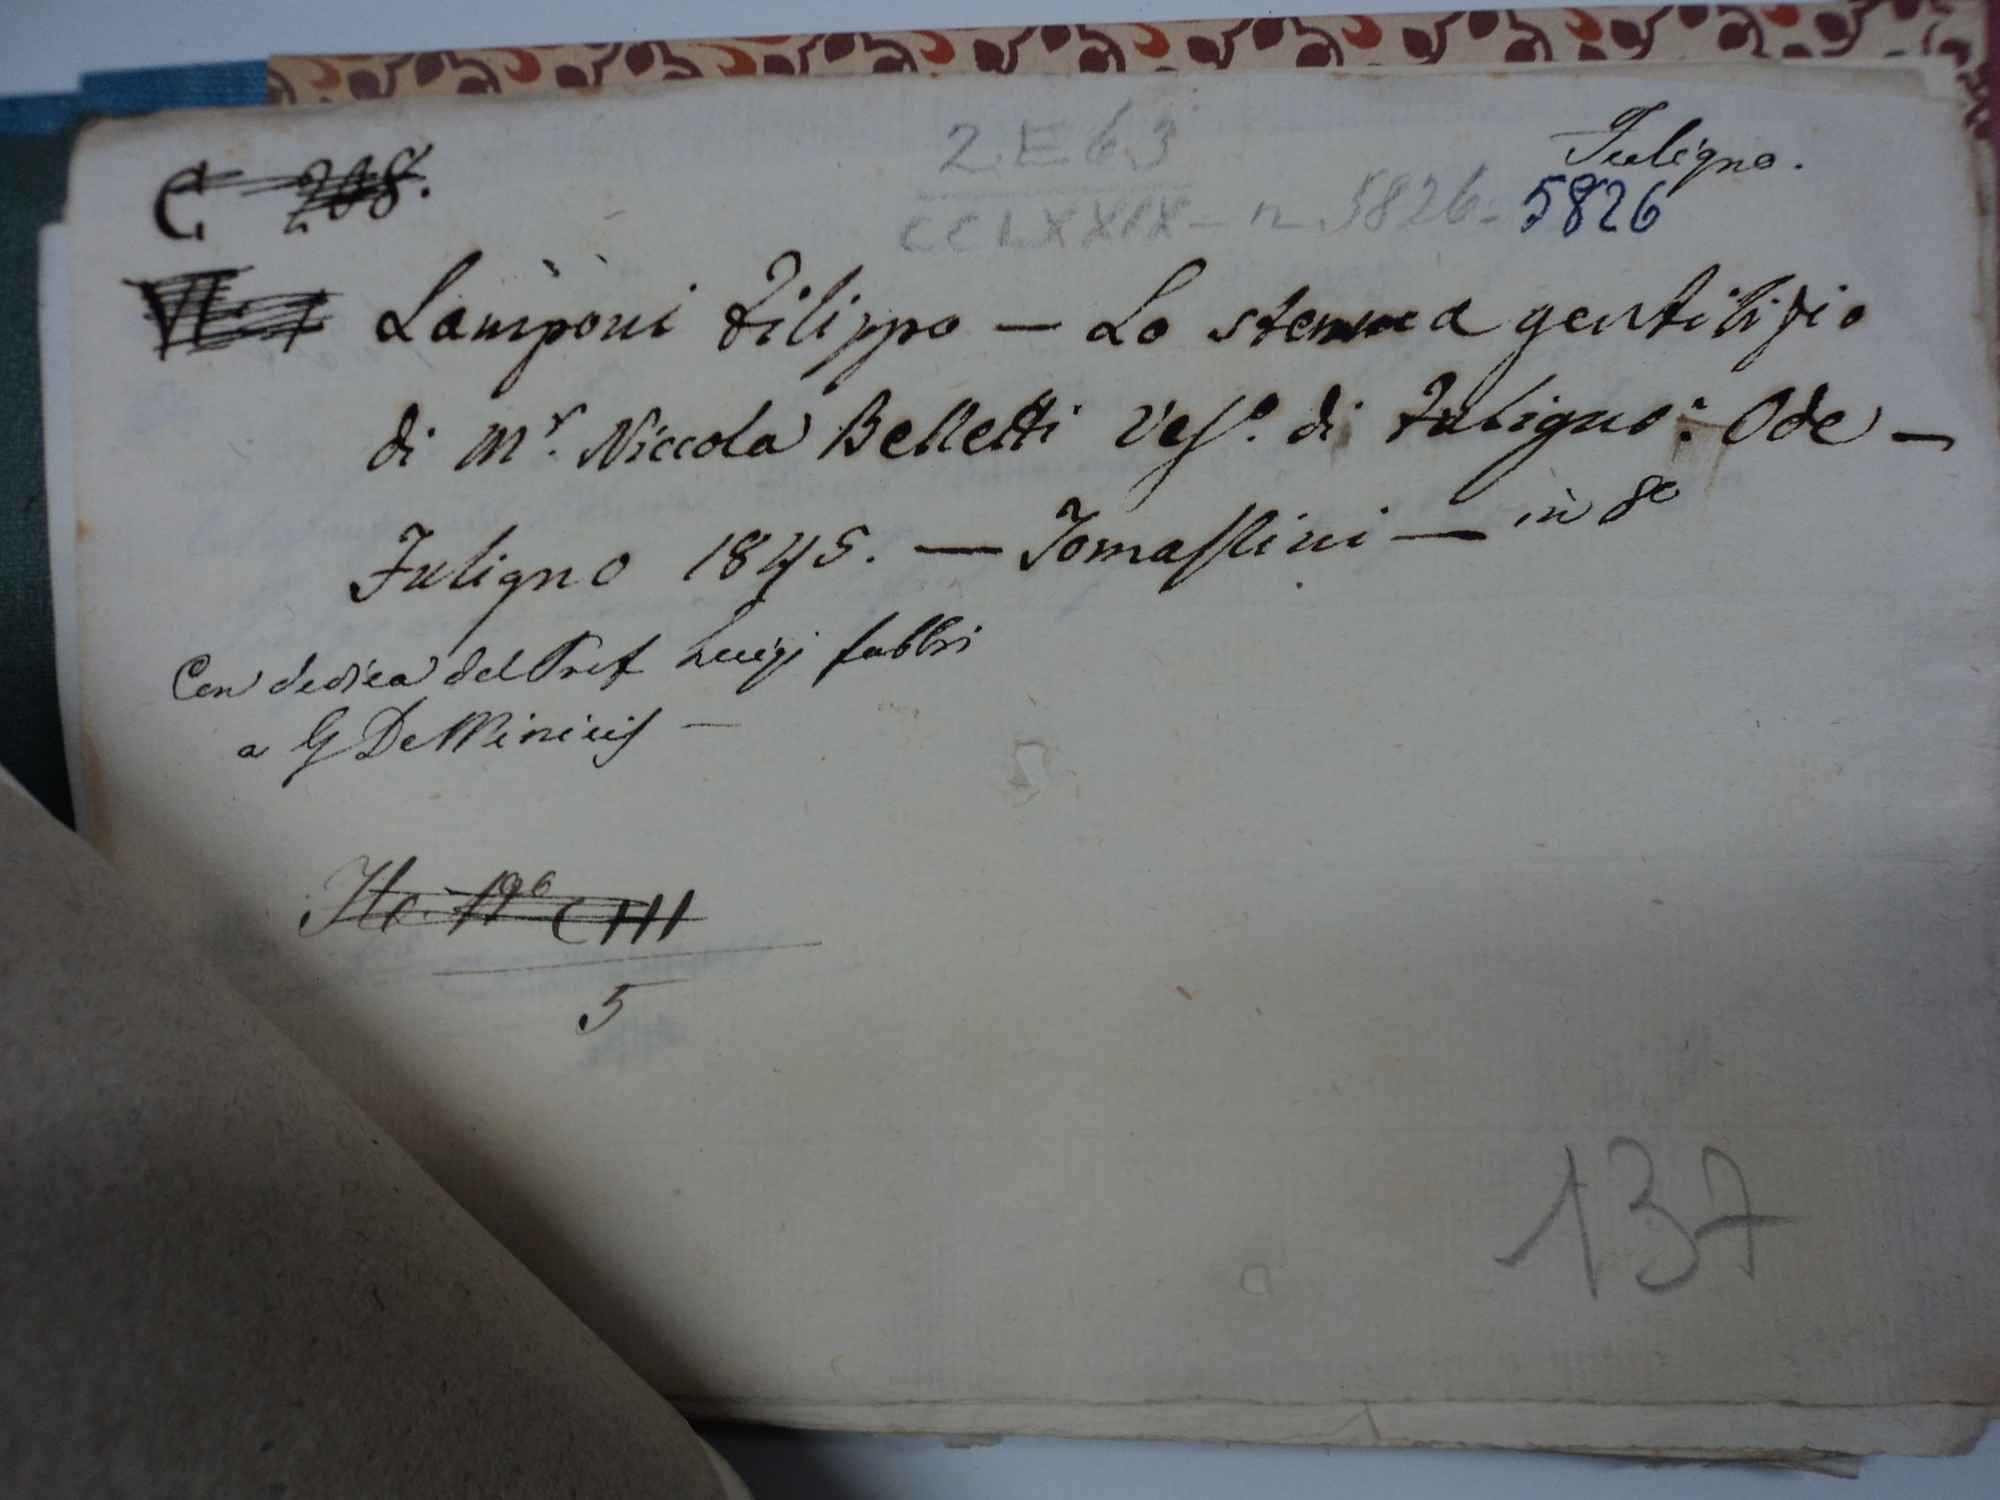 C 208.
2 E 63
Fuligno.
CCLXXIX - n. 5826 - 5826
VII.
Lamponi Filippo — Lo stemma gentilizio
di Mr. Niccola Belletti Vesc.o di Fuligno: Ode —
Fuligno 1845. — Tomassini — in 8o
Con dedica del Prof Luigi fabbri
a G De Minicis —
CIII
5
137